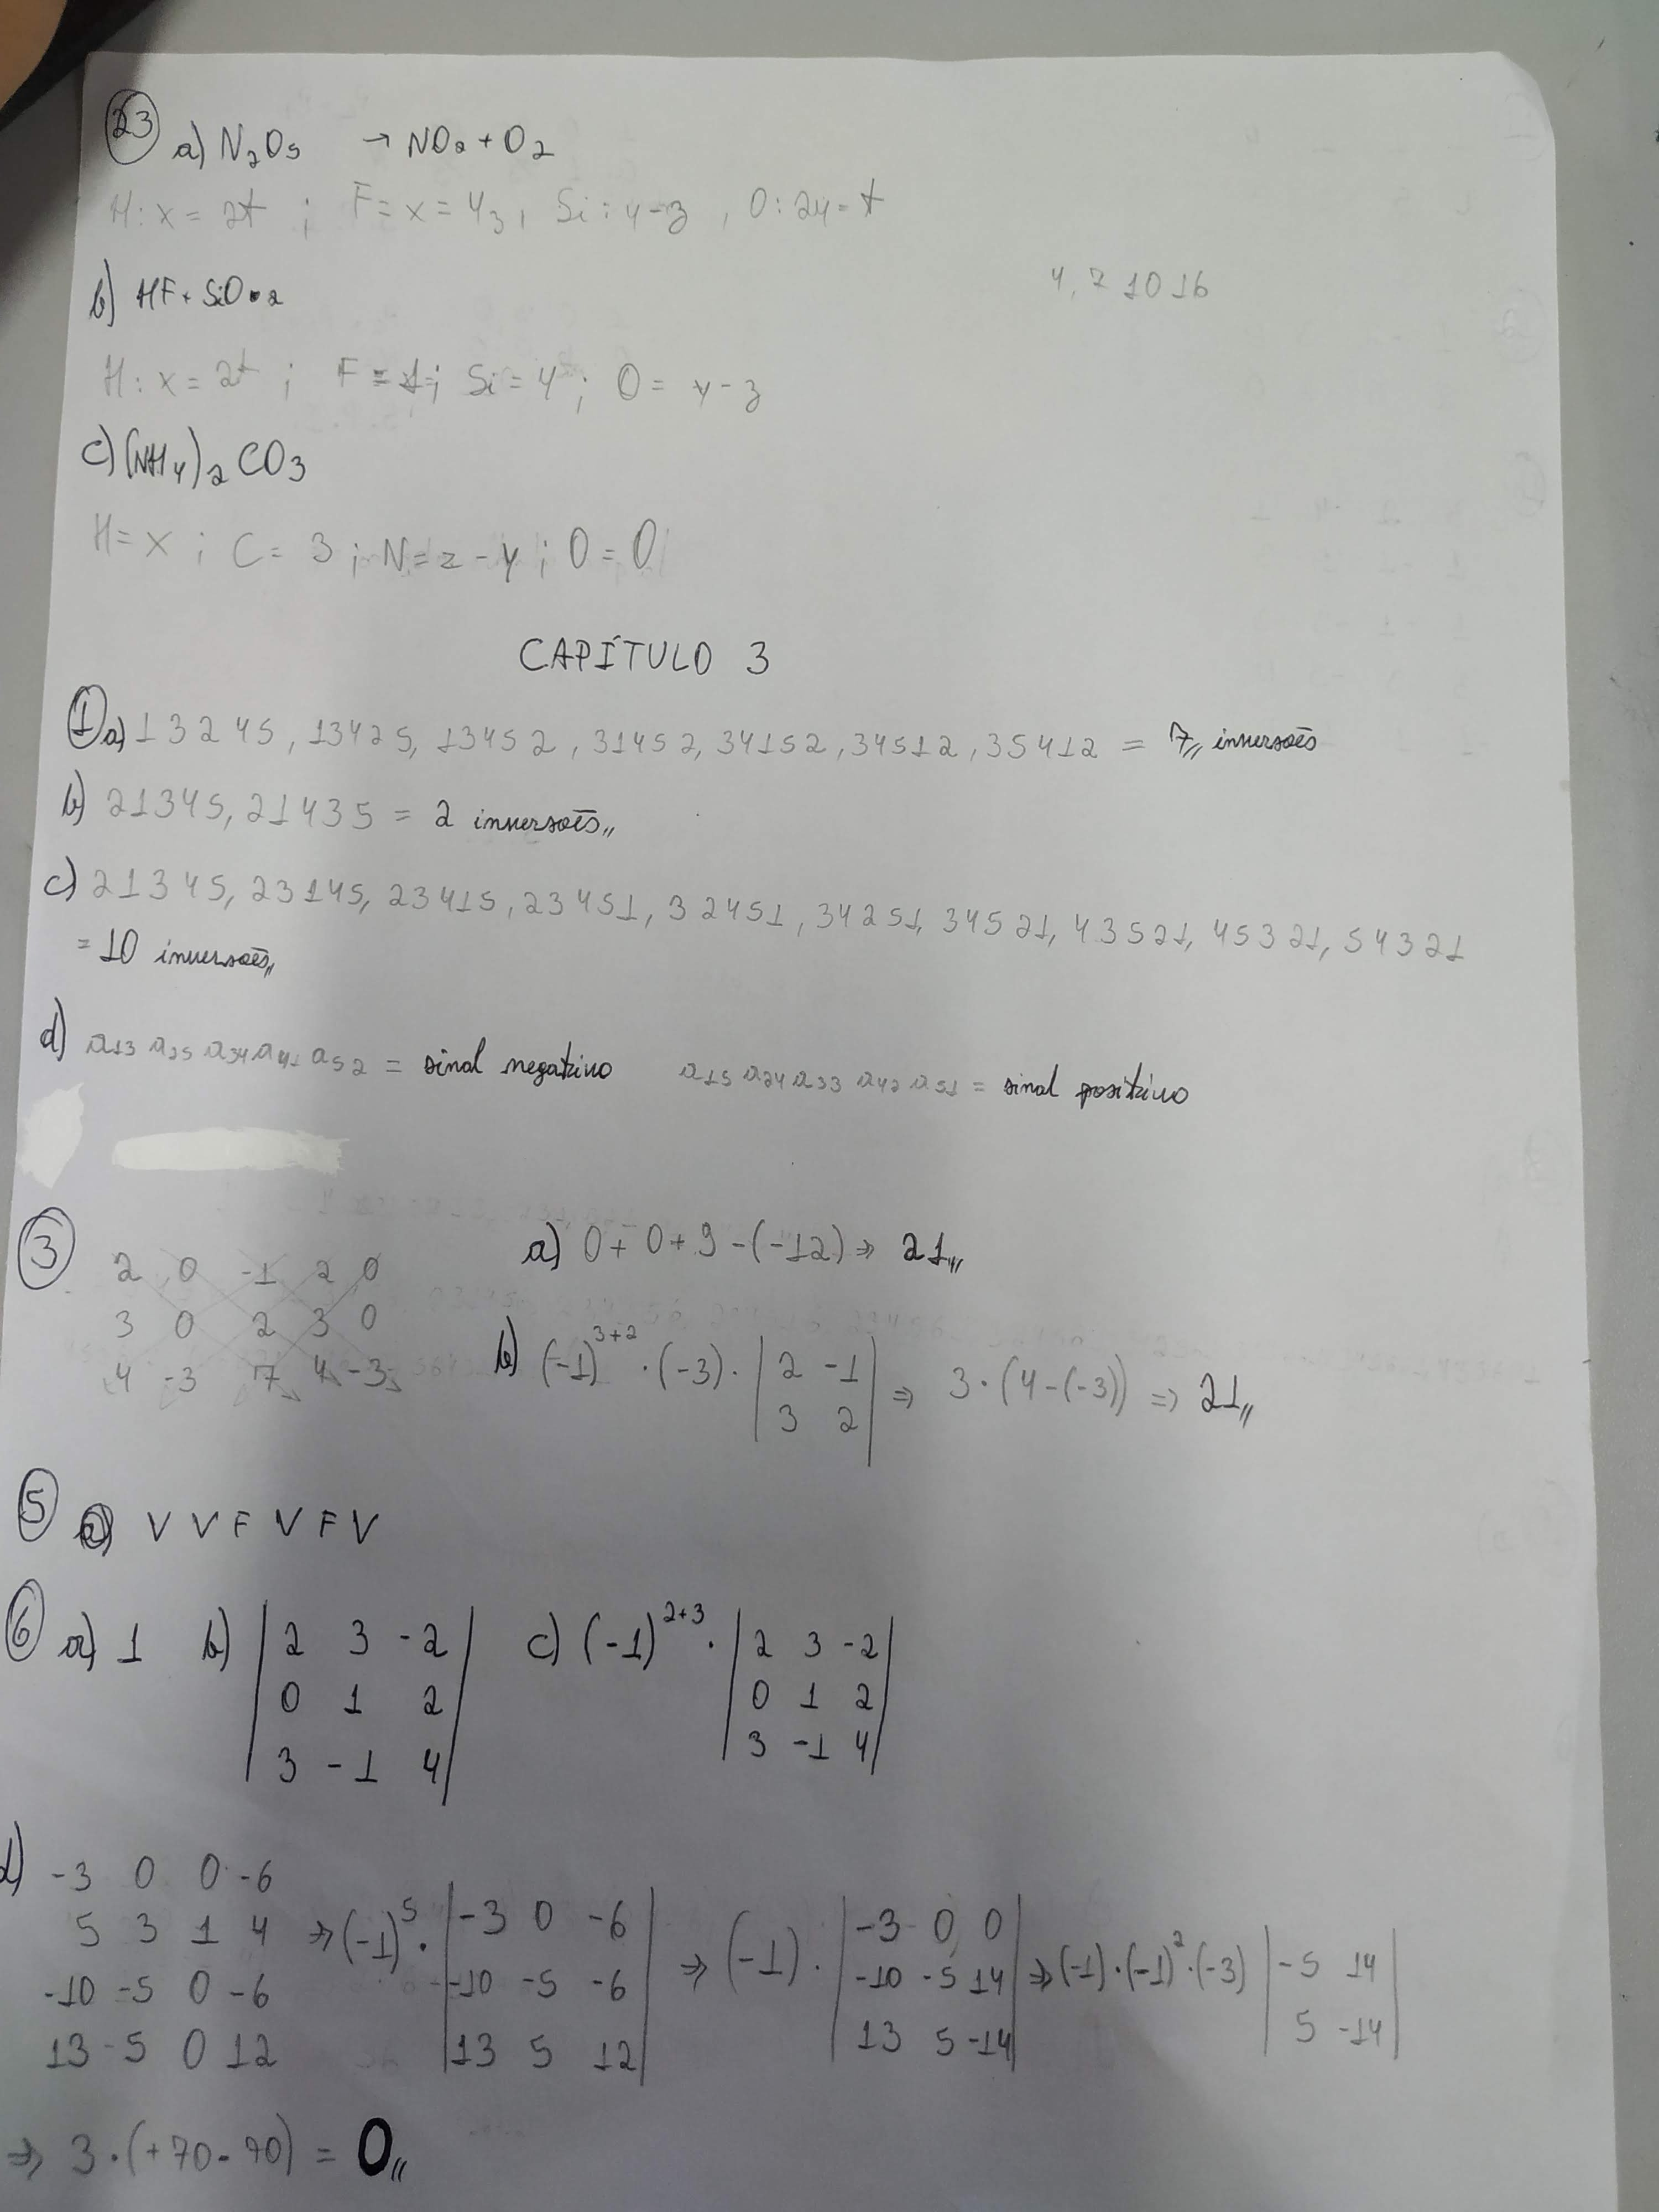 23 a) N2O5 → NO2 + O2
H: x = 2t ; F = x = 43, Si: y-z, O: 2y = t
b) HF + SiO2
4, 7 10 16
H: x = 2t ; F = 1; Si = 4 ; O = y-z
c) (NH4)2 CO3
H = x ; C = 3 ; N = z - y ; O = 0
CAPÍTULO 3
1 a) 13245, 13425, 13452, 31452, 34152, 34512, 35412 = 7,, inversões
b) 21345, 21435 = 2 inversões,,
c) 21345, 23145, 23415, 23451, 32451, 34251, 34521, 43521, 45321, 54321
= 10 inversões,,
d) a13 a25 a34 a41 a52 = sinal negativo a15 a24 a33 a42 a51 = sinal positivo
3 a) 0 + 0 + 9 - (-12) ⇒ 21,,
2 0 -1 2 0
3 0 2 3 0
4 -3 7 4 -3
b) (-1)^3+2 · (-3) · | 2 -1 | ⇒ 3 · (4 - (-3)) ⇒ 21,,
| 3 2 |
5 a) V V F V F V
6 a) 1 b) | 2 3 -2 | c) (-1)^2+3 · | 2 3 -2 |
| 0 1 2 | | 0 1 2 |
| 3 -1 4 | | 3 -1 4 |
d) -3 0 0 -6
5 3 1 4 ⇒ (-1)^5 · | -3 0 -6 | ⇒ (-1) · | -3 0 0 | ⇒ (-1) · (-1)^2 · (-3) | -5 14 |
-10 -5 0 -6 | -10 -5 -6 | | -10 -5 14 | | 5 -14 |
13 5 0 12 | 13 5 12 | | 13 5 -14 |
⇒ 3 · (+70 - 70) = 0,,